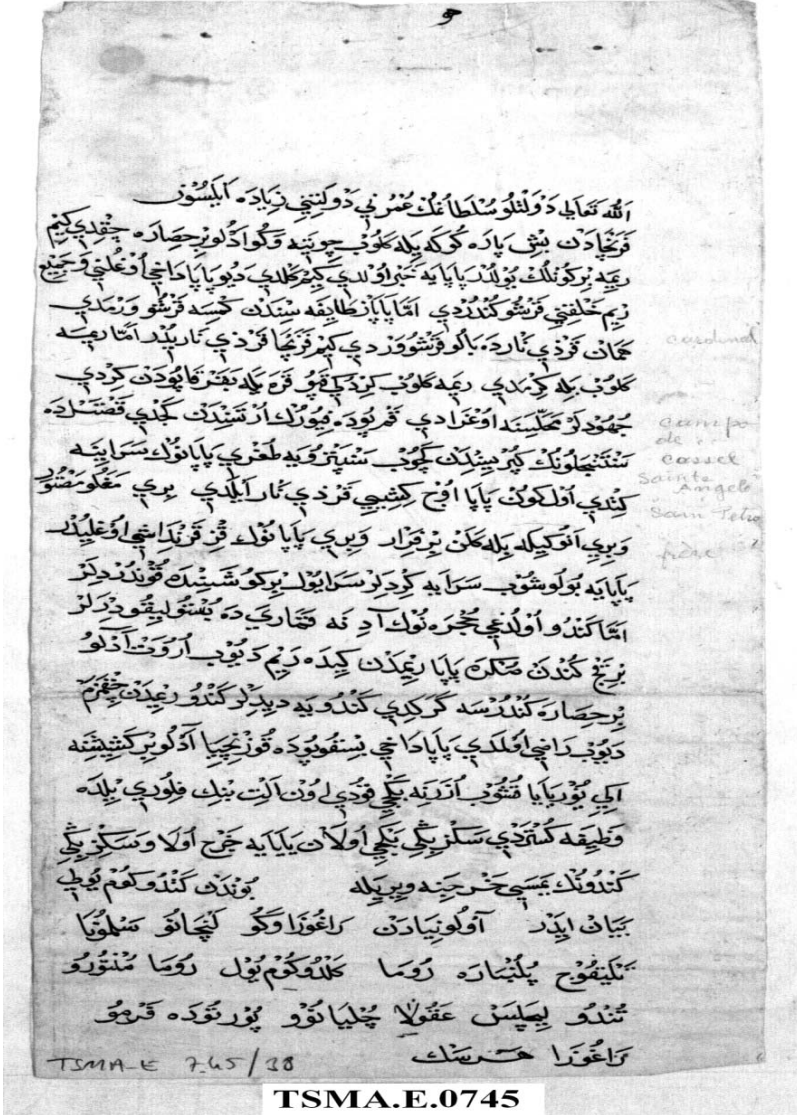 هو
الله تعالى دولتلو سلطانمك عمرني دولتني زياده ايلسون
فرنچادن بش پاره كوكه بيله كلوب چوينيه وكوا ادلو بر حصاره چقدي كيم
ريميه بر كونلك يولدر پاپايه خبر اولدي كيم كلدي ديو پاپا داخي اوغلني وجميع
ريم خلقني قرشو كندردي اما پاپاز طايفه سندن كمسه قرشو ورمدي
همان قرذي نارده بالو قرشو وردي كيم فرنچا قرذي ناريدر اما ريميه
كلوب بيله كرمدي ريميه كلوب كرذكي قمو قره يله بقنر قاپودن كردي
جهودلر محلسنه اوغرادي قمپودە فيورك ارتسندن كچدي قشتل ده
سنتنجلونك كپريسندن كچوب سنپترويه طغري پاپانوك سراينه
كندي اول كون پاپا اوچ كشييي قرذي نار ايلدي بري مغلو منتور
وبري انوكيله بيله كلن بر فرار وبري پاپانوك قز قرنداشي اوغليدر
پاپايه بولوشوب سرايه كردلر سرايوك بر كوشسنده قوندردلر
اما كندو اولدغي حجره نوك آدنه قماري ده بستوليقو ديرلر
بر قچ كندن صكره پاپا ريمدن كيده ريم ديوب اروت آدلو
بر حصاره كندرسه كركدي كندويه ديديلر كندو ريمدن چقمزم
ديوب راضي اولمدي پاپا داخي بسقوپوده قوزنچيا آدلو بر كشيشنه
ايكي يوز پايا قشوب اوزرنه بكجي قودي اون الت بنك فلوري ييلده
وظيفه كستردي سكز بيكي بكجي اولان يايايه خرج اولا وسكز بيكي
كندونك يمسي خرجنه ويريله بوندن كندو كلدوكم يولي
بيان ايدر آولونيادن راغوزا وگو كنچانو سلمونا
تليقوج پلنباره روما كلدوكوم يول روما منتورو
تندو بيچلس عقولا چليانوو پورتوده فرمو
راغوزا هرسك
cardinal
campo de
castel
Sainte Angelo
Sain Petro
frère
TSMA-E 745/38
TSMA.E.0745